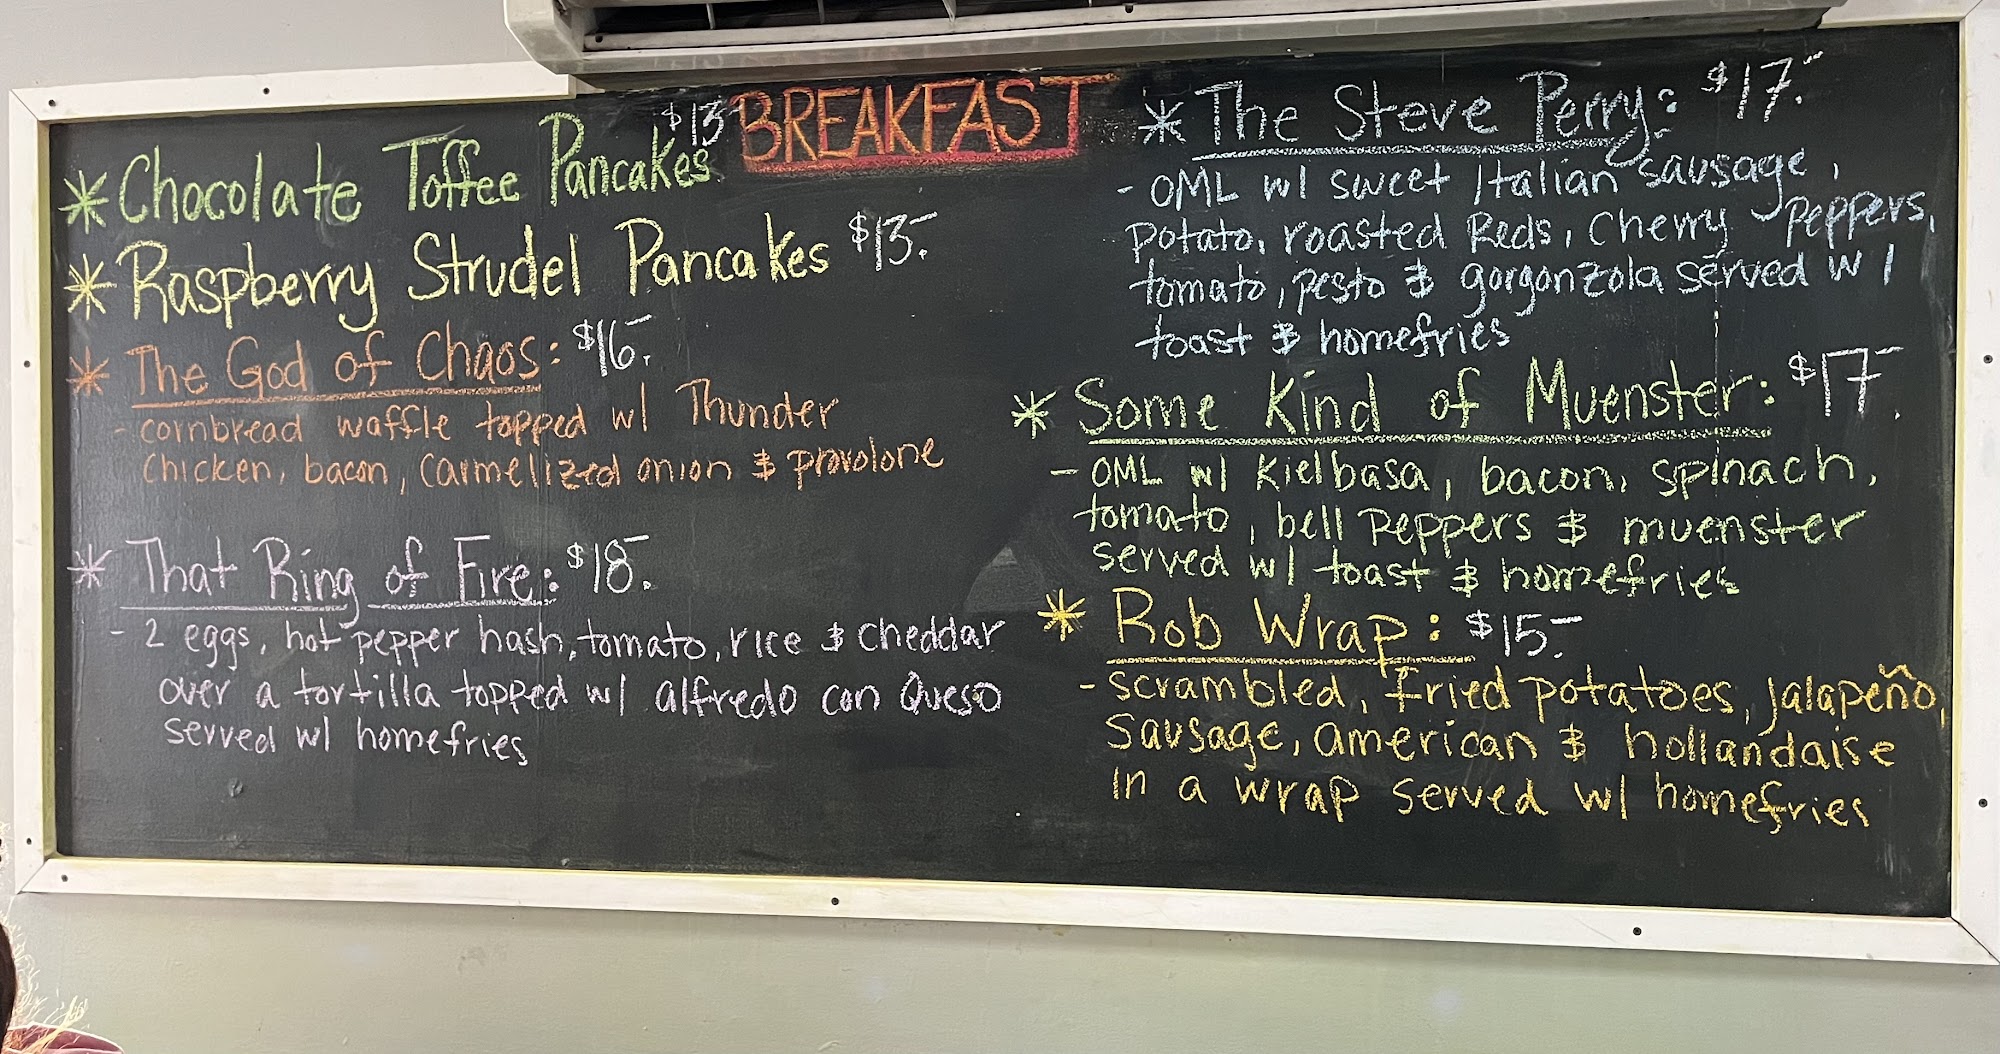 BREAKFAST
* Chocolate Toffee Pancakes $13-
* Raspberry Strudel Pancakes $13.-
* The God of Chaos: $16.-
- cornbread waffle topped w/ Thunder
chicken, bacon, carmelized onion & provolone
* That Ring of Fire: $18.-
- 2 eggs, hot pepper hash, tomato, rice & cheddar
over a tortilla topped w/ alfredo con Queso
served w/ homefries
* The Steve Perry: $17.-
- OML w/ sweet Italian sausage,
potato, roasted Reds, Cherry Peppers,
tomato, pesto & gorgonzola served w/
toast & homefries
* Some Kind of Muenster: $17.-
- OML w/ Kielbasa, bacon, spinach,
tomato, bell peppers & muenster
served w/ toast & homefries
* Rob Wrap: $15.-
- scrambled, fried potatoes, jalapeño,
sausage, american & hollandaise
in a wrap served w/ homefries